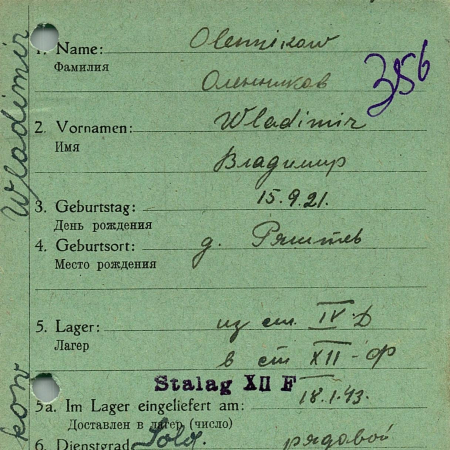 1. Name: Olennikow
Фамилия Оленников
356
2. Vornamen: Wladimir
Имя Владимир
3. Geburtstag: 15.9.21.
День рождения
4. Geburtsort: д.
Место рождения
5. Lager: из ст. IV-Д
Лагер в ст XII-Ф
Stalag XII F
5a. Im Lager eingeliefert am: 18.1.43.
Доставлен в лагер (число)
6. Dienstgrad Sold. рядовой
Wladimir
kow